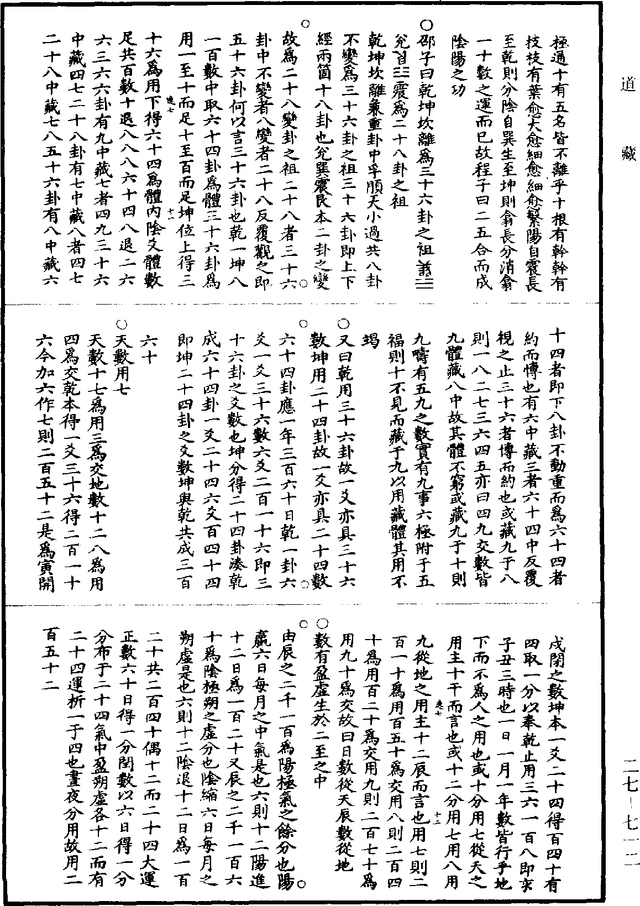 極過十有五名皆不離乎十根有幹幹有
技枝有葉愈大愈細愈細愈繁陽自震長
至乾則分陰自巽生至坤則翕長分消翕
一十數之運而巳故程子曰二五合而成
陰陽之功
○邵子曰乾坤坎離爲三十六卦之祖
兊 震爲二十八卦之祖
乾坤坎離兼重卦中孚順大小過共八卦
不變爲三十六卦之祖三十六卦即上下
經兩箇十八卦也兊巽震艮本二卦之變
故爲二十八變卦之祖二十八者三十六
卦中不變者八變者二十八反覆觀之即
五十六卦何以言三十六卦也乾一坤八
一百數中取六十四卦爲體三十六卦爲
用一至十而足十至百而足坤位上得三
十六爲用下得六十四爲體內陰爻體數
足共百數十退八八八六十四八退二六
六三六六卦有九中藏七者四九三十六
中藏四七二十八卦有七中藏八者四七
二十八中藏七八五十六卦有八中藏六
十四者即下八卦不動重而爲六十四者
約而博也有六中藏三者六十四中反覆
視之止三十六者博而約也或藏九于八
則一八二七三六四五亦曰四九交數皆
九體藏八中故其體不窮或藏九于十則
九疇有五九之數實有九事六極附于五
福則十不見而藏于九以用藏體其用不
竭
○又曰乾用三十六卦故一爻亦具三十六
數坤用二十四卦故一爻亦具二十四數
六十四卦應一年三百六十日乾一卦六
爻一爻三十六數六爻二百一十六即三
十六卦之爻數也坤分得二十四卦湊乾
成六十四卦一爻二十四六爻百四十四
即坤二十四卦之爻數坤與乾共成三百
六十
○天數用七
天數十七爲用三爲交地數十二八爲用
四爲交乾本得一爻三十六得二百一十
六今加六作七則二百五十二是爲寅開
戌閉之數坤本一爻二十四得百四十有
四取一分以奉乾止用三六一百八即亥
子丑三時也一日一月一年數皆行乎地
下而不爲人之用也或十分用七從天之
用主十干而言也或十二分用七用八用
九從地之用主十二辰而言也用七則二
百一十爲用百五十爲交用八則二百四
十爲用百二十爲交用九則二百七十爲
用九十爲交故曰日數從天辰數從地
○數有盈虛生於二至之中
由辰之二千一百爲陽極氣之餘分也陽
贏六日每月之中氣是也六則十二陽進
十二日爲一百二十又辰之二千一百六
十爲陰極朔之虛分也陰縮六日每月之
朔虛是也六則十二陰退十二日爲一百
二十共二百四十偶十二而二十四大運
正數六十日得一分閏數以六日得一分
分布于二十四氣中盈朔虛各十二而有
二十四運析一于四也晝夜分用故用二
百五十二
道藏
二七—七一二